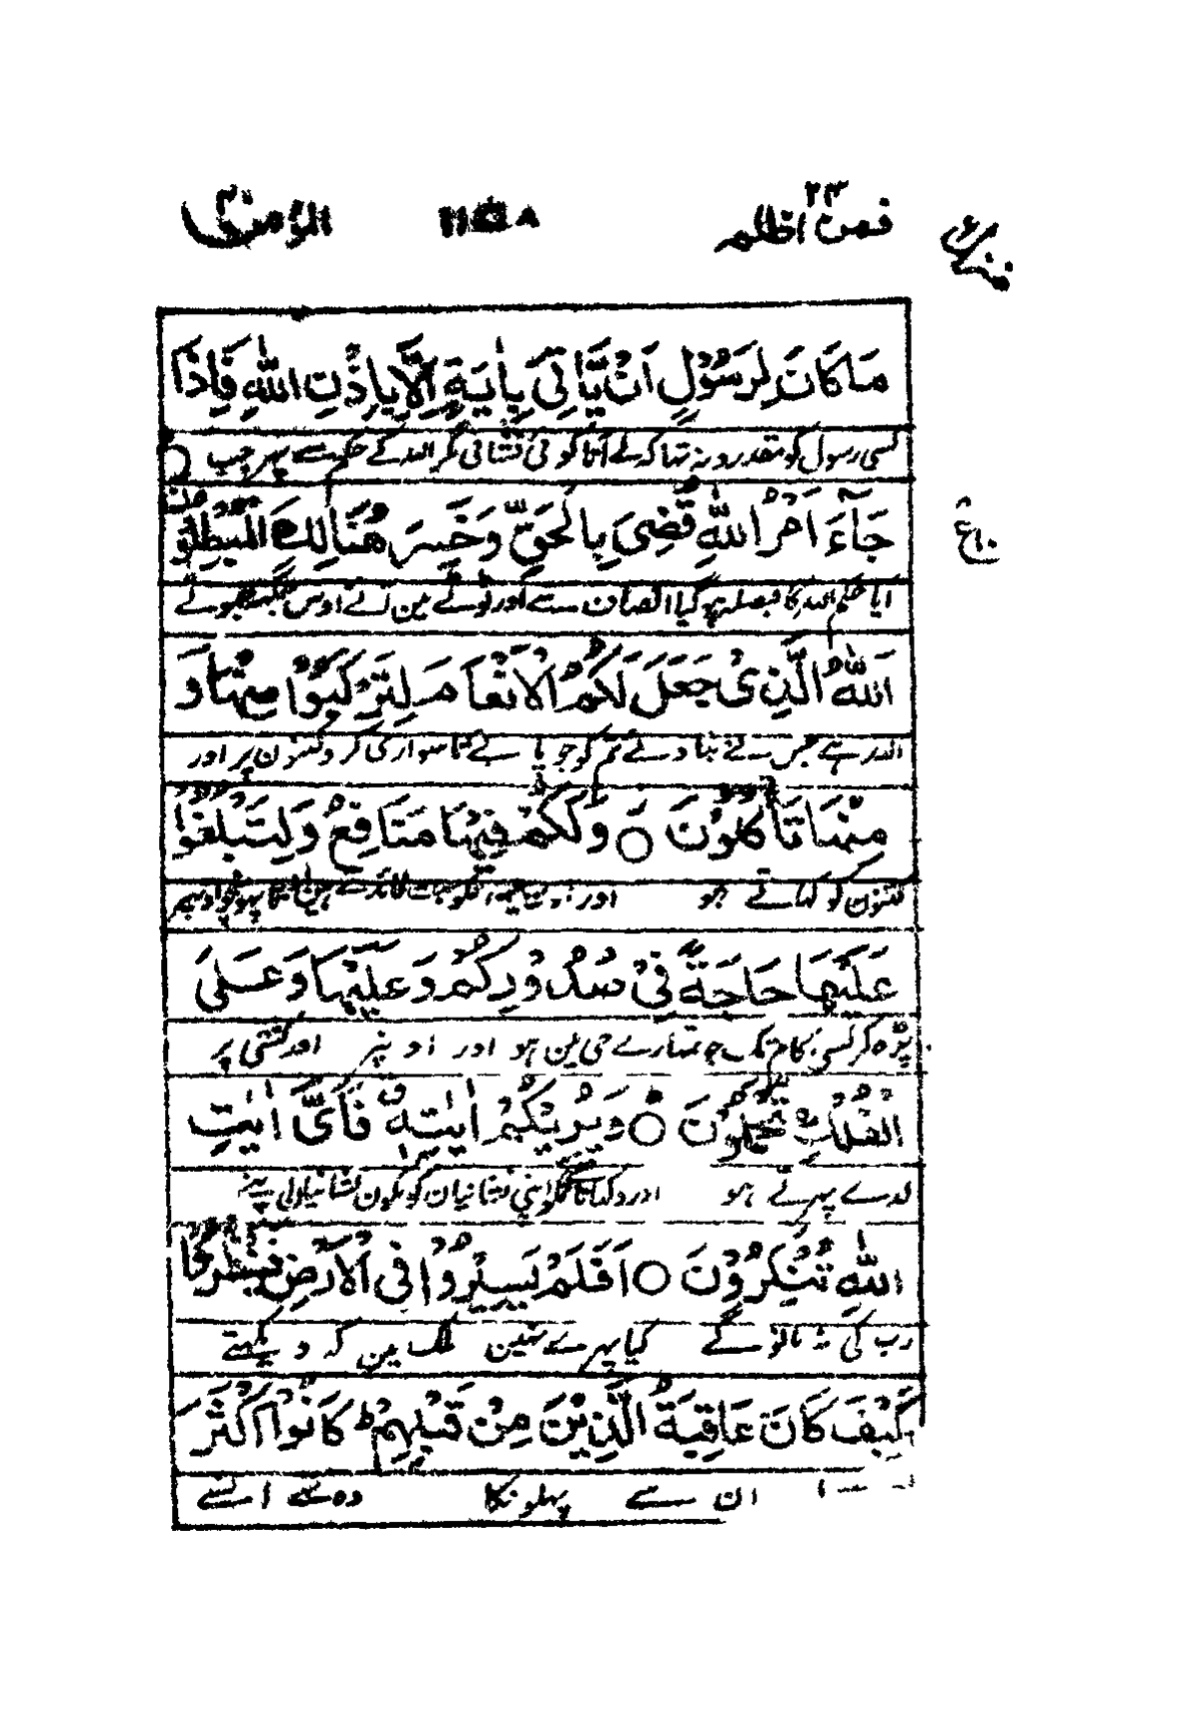 فمن اظلم ٢٤ ١١٥٨ المؤمن ٤٠
منزل ٦
مَا كَانَ لِرَسُوْلٍ اَنْ يَّاْتِىَ بِاٰيَةٍ اِلَّا بِاِذْنِ اللّٰهِ فَاِذَا
كسی رسول کو مقدور نہ تہا کہ لے آتا کوئی نشانی مگر اللہ کے حکم سے پہر جب
جَآءَ اَمْرُ اللّٰهِ قُضِىَ بِالْحَقِّ وَخَسِرَ هُنَالِكَ الْمُبْطِلُوْنَ
ع ١٠
آیا حکم اللہ کا فیصلہ ہو گیا انصاف سے اور ٹوٹے مین آئے اوس جگہ جھوٹے
اَللّٰهُ الَّذِىْ جَعَلَ لَكُمُ الْاَنْعَامَ لِتَرْكَبُوْا مِنْهَا وَ
اللہ ہے جس نے بنا دئے تم کو چوپائے تا سواری کرو کتنون پر اور
مِنْهَا تَاْكُلُوْنَ ○ وَلَكُمْ فِيْهَا مَنَافِعُ وَلِتَبْلُغُوْا
کتنون کو کہاتے ہو اور فائدے ہین
عَلَيْهَا حَاجَةً فِىْ صُدُوْرِكُمْ وَعَلَيْهَا وَعَلَى
چڑہ کر کسی کام تک جو تمہارے جی مین ہو اور اونپر اور کشتی پر
الْفُلْكِ تُحْمَلُوْنَ ○ وَيُرِيْكُمْ اٰيٰتِهٖ فَاَىَّ اٰيٰتِ
لدے پہرتے ہو اور دکہاتا اپنی نشانیان
اللّٰهِ تُنْكِرُوْنَ ○ اَفَلَمْ يَسِيْرُوْا فِى الْاَرْضِ فَيَنْظُرُوْا
رب کی نہ مانو گے کیا پہرے نہین ملک مین کہ دیکہتے
كَيْفَ كَانَ عَاقِبَةُ الَّذِيْنَ مِنْ قَبْلِهِمْ ط كَانُوْٓا اَكْثَرَ
ان سے پہلونکا وہ تھے ان سے